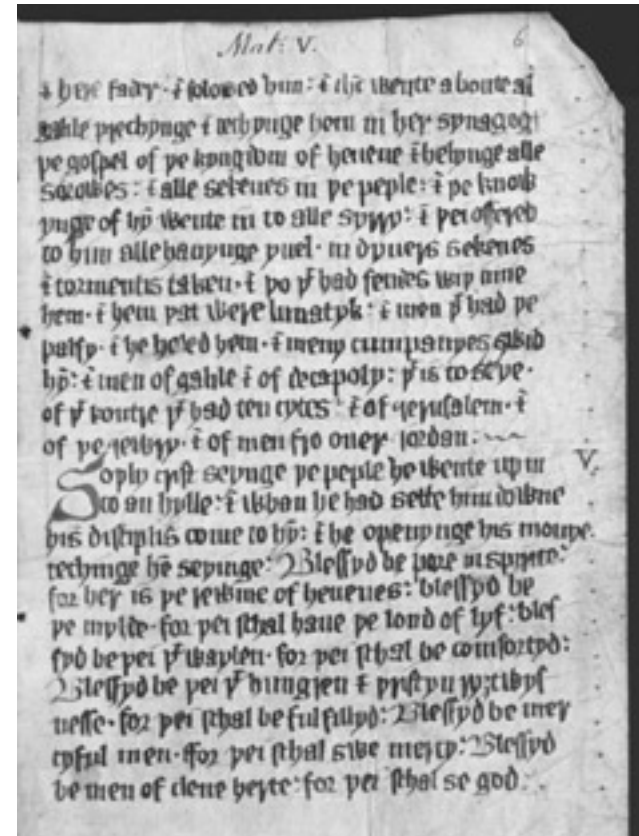 Mat: V. 6
⁊ here fadr · ⁊ folowed hym : ⁊ ihc wente aboute al
galile prechynge ⁊ techynge hem in her synagogis
þe gospel of þe kyngdom of heuene ⁊ helynge alle
sorowes : ⁊ alle sekenes in þe peple : ⁊ þe know
ynge of hȳ wente in to alle syrry : ⁊ þei offered
to hym alle hauynge yuel · in dyuers sekenes
⁊ tormentis taken · ⁊ þo þt had fendes wiþ inne
hem · ⁊ hem þat were lunatyk : ⁊ men þt had þe
palsy · ⁊ he heled hem · ⁊ meny cumpanyes
hȳ : ⁊ men of galile ⁊ of decapoly : þt is to seye ·
of þt contre þt had ten cytes : ⁊ of ierusalem · ⁊
of þe iewry · ⁊ of men fro ouer iordan :
Soþly crist seynge þe peple he wente up in V.
to an hylle : ⁊ whan he had sette him downe
his disciplis come to hȳ : ⁊ he openynge his mouþe ·
techinge hē seyinge : Blessyd be pore in spyrite :
for her is þe rewme of heuenes : blessyd be
þe mylde · for þei schal haue þe lond of lyf : bles
syd be þei þt waylen · for þei schal be comfortyd :
Blessyd be þei þt hungren ⁊ þristyn ryȝtwys
nesse · for þei schal be ful fillyd : Blessyd be mer
cyful men · ffor þei schal mercy : Blessyd
be men of clene herte : for þei schal se god .